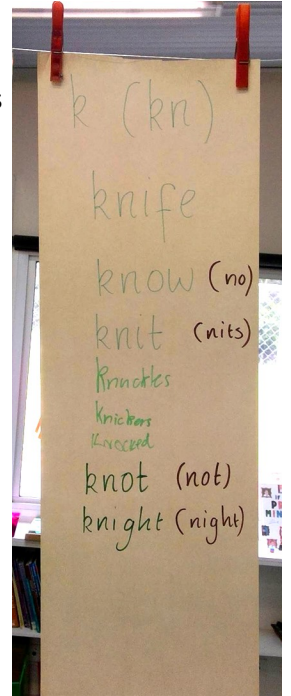 k (kn)
knife
know (no)
knit (nits)
Knuckles
Knickers
Knocked
knot (not)
knight (night)